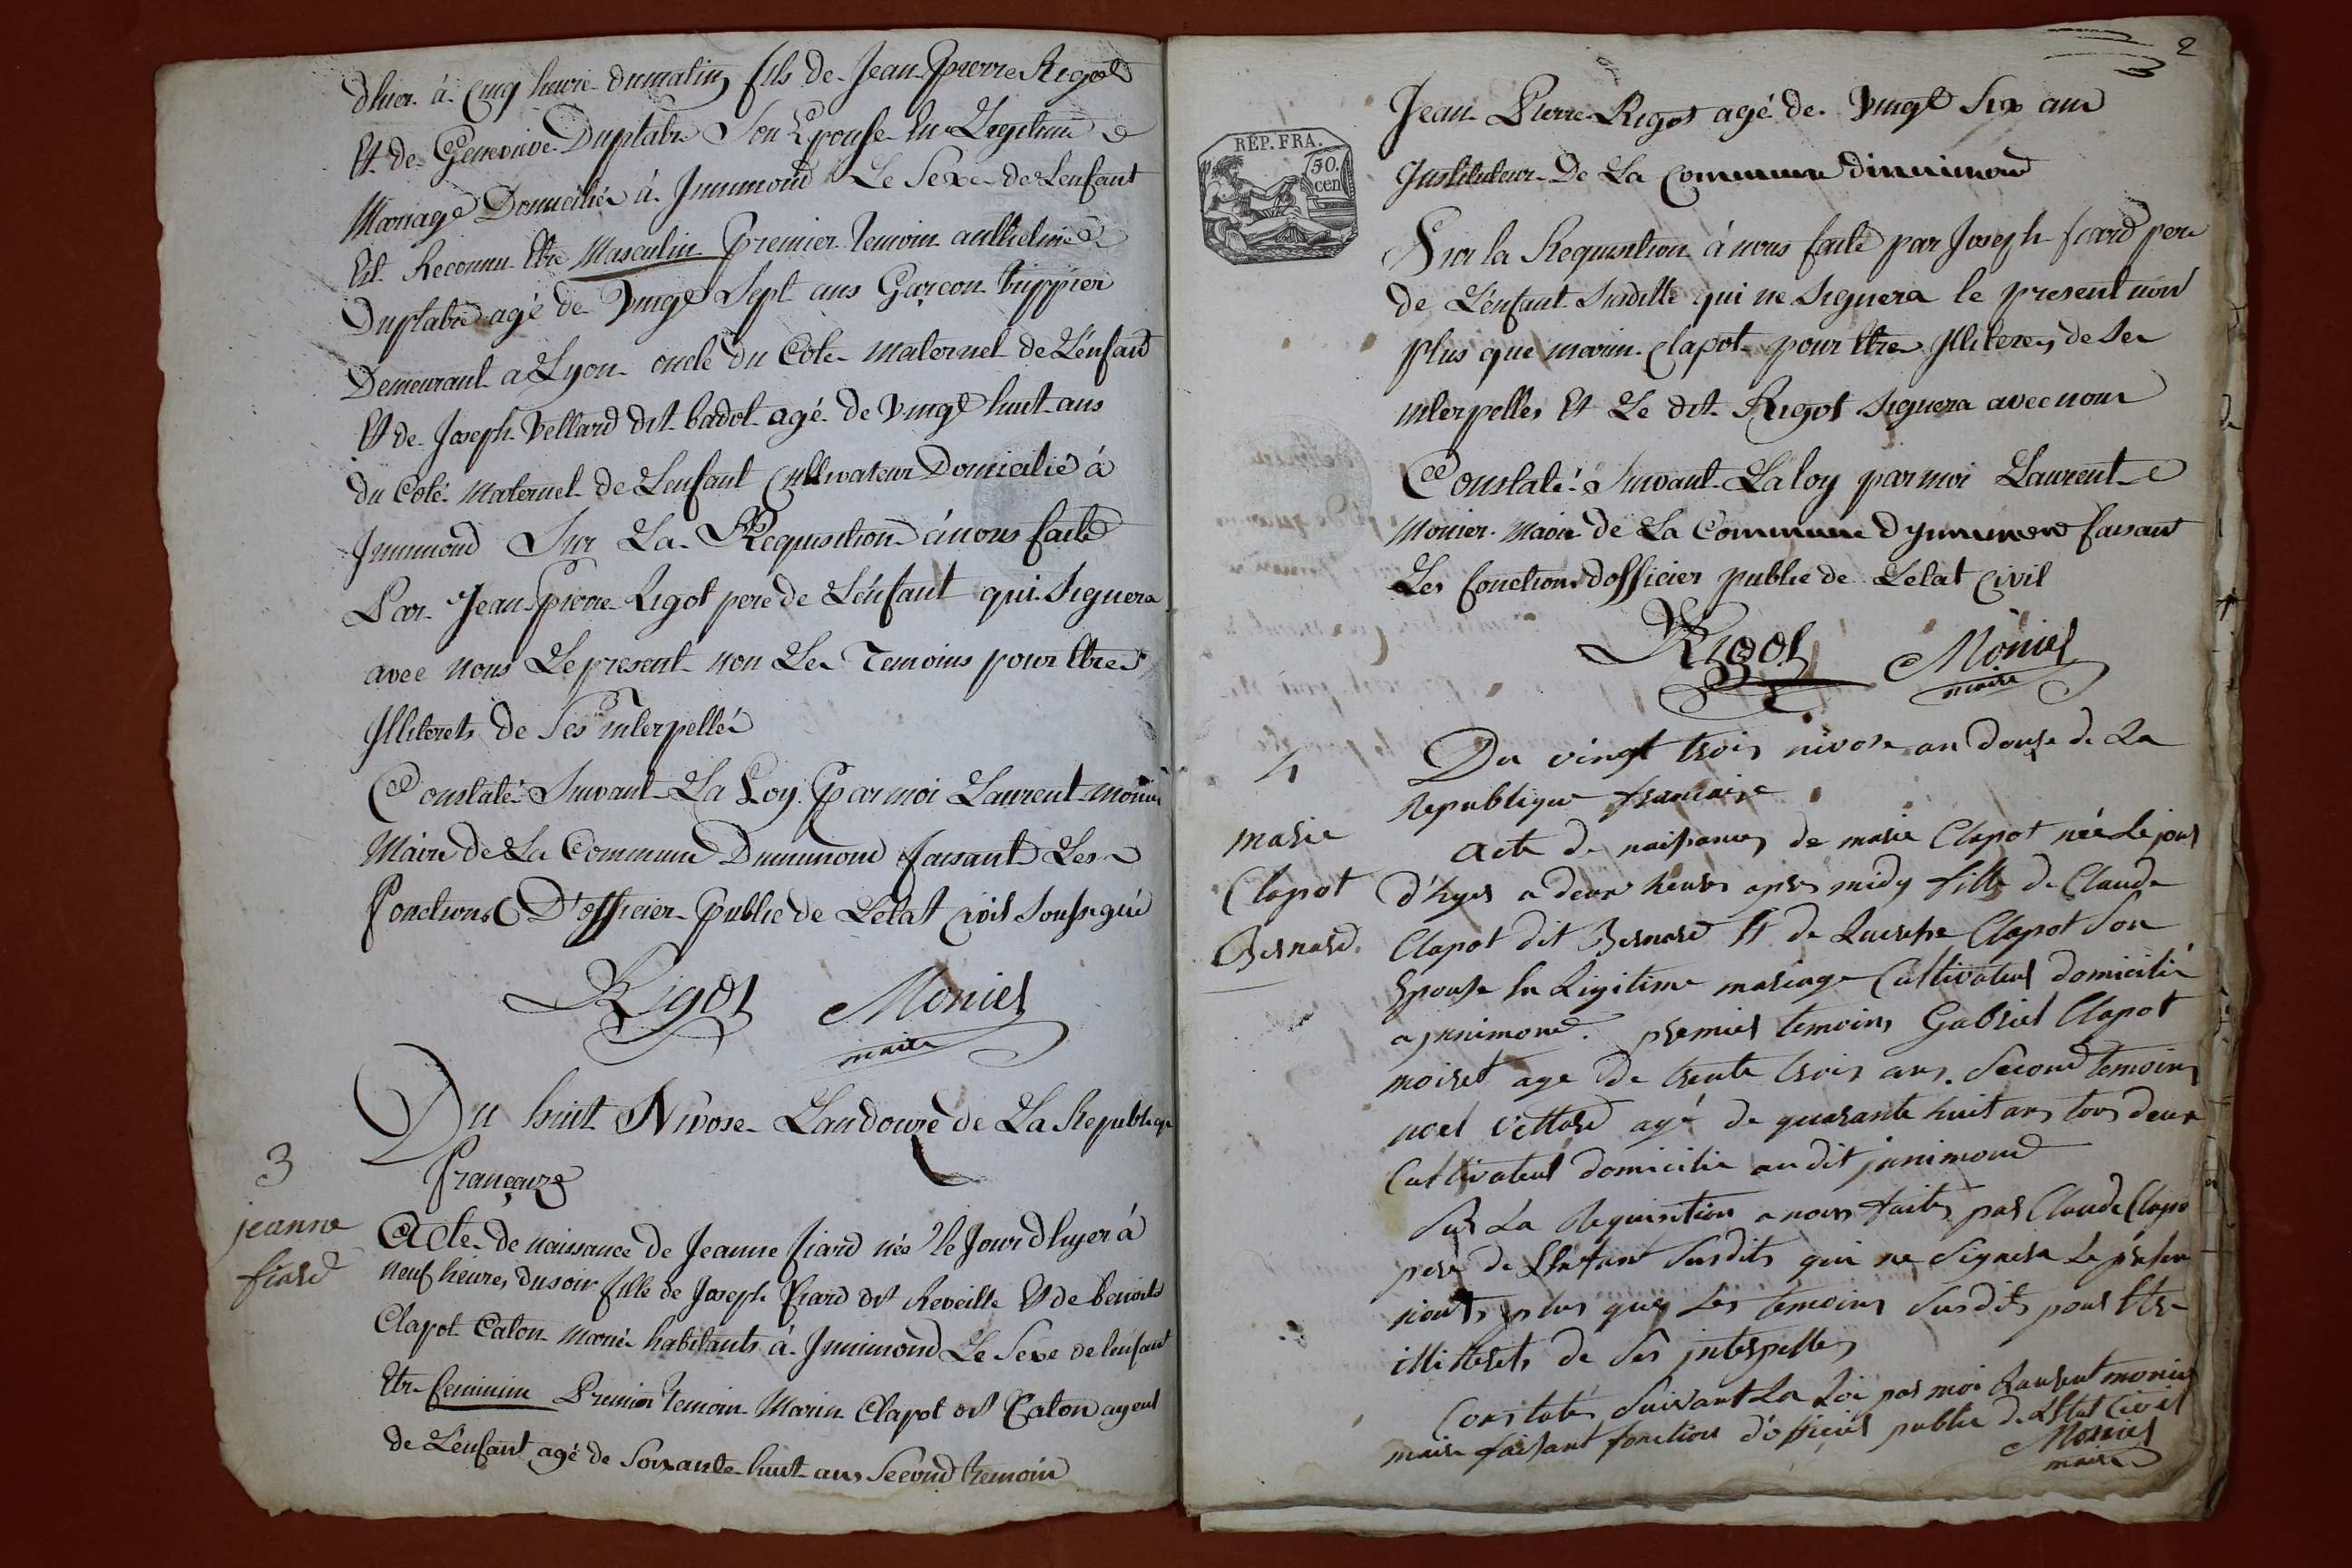 dhier à Cinq heure dumatin fils de Jean Pierre Rigot
Et de Genevieve Duplatre Son Epouse En Legitime
Mariage Domiciliés à Innimond Le Sexe de Lenfant
Est Reconnu Etre Masculin Premier Temoin anthelme
Duplatre agé de Vingt Sept ans Garcon trippier
Demeurant a Lyon oncle du Coté maternel de L'enfant
Et de Joseph Vellard dit badot agé de Vingt huit ans
du Coté Maternel de Lenfant Cultivateur Domicilié à
Innimond Sur La Requisition à nous faite
Par Jean Pierre Rigot pere de L'enfant qui Signera
avec nous Le present non Les Temoins pour Etre
Illiterets de Ses interpellés
Constaté Suivant La Loy Par moi Laurent Monier
Maire de La Commune Dinnimond faisant Les
Fonctions D'officier Public de Letat Civil Soussigné
Rigot Monier
maire
Du huit Nivose Landouze de La Republique
françaize
3
jeanne
fiard
Acte de naissance de Jeanne fiard née le Jour dhyer à
neuf heures du soir fille de Joseph Fiard dit Reveille Et de benoite
Clapot Caton Marié habitants à Innimond Le Sexe de lenfant
Etre feminim Premier Temoin Marin Clapot dit Caton ayeul
de L'enfant agé de Soixante huit ans Second temoin
2
Jean Pierre Rigot agé de Vingt Six ans
Instituteur De La Commune dinnimond
RÉP. FRA.
50.
cen
Sur la Requisition à nous faite par Joseph fiard pere
de L'enfant Susditte qui ne Signera le present non
plus que marin Clapot pour Etre Illiteres de Ses
interpelles Et Le dit Rigot Signera avec nous
Constaté Suivant La loy par moi Laurent
Monier Maire de La Commune dynnimond faisant
Les fonctions dofficier public de Letat Civil
Rigot Monier
maire
4
marie
Clapot
Bernard
Du vingt trois nivose an douse de La
Republique francaise
acte de naissances de marie Clapot née Le jour
d'hyer a deux heures apres midy fille de Claude
Clapot dit Bernard Et de Clapot Son
Epouse En Ligitime mariage Cultivateur domicilié
a jnnimond. premier temoins Gabriel Clapot
moiret age de trente trois ans. Second temoins
noel vettard agé de quarante huit ans tous deux
Cultivateur domicilie au dit jnnimond
Sur La Requisition a nous faites par Claude Clapo
pere de LEnfant Susdits qui ne Signera Le présen
nonts plus que Les temoins Susdits pour Etre
illitterets de Ses interpelles
Constatés Suivant La Loi par moi Laurent monier
maire faisant fonction d'officier public de LEtat Civil
Monier
maire